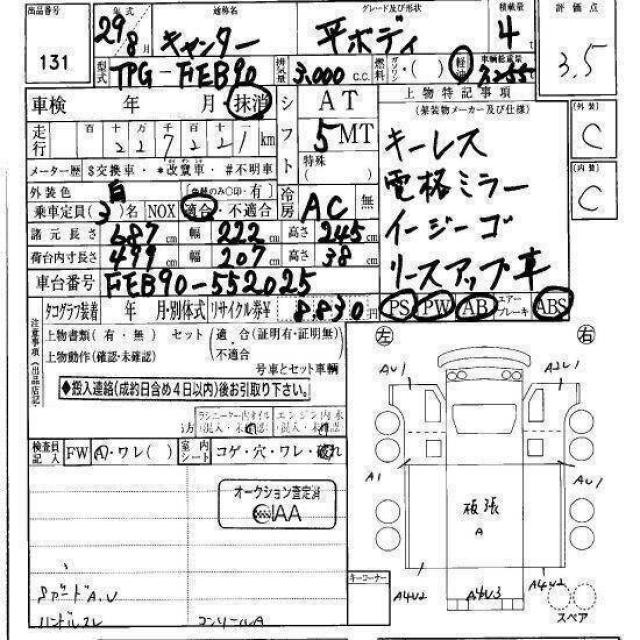 出品番号
131
年式 29年 8月
通称名
キャンター
グレード及び形状
平ボディ
積載量
4 t
評価点
3.5
型式 TPG-FEB90
排気量 3,000 C.C.
燃料 ガソリン・( ) 軽油
車輌総重量
車検 年 月 抹消
シフト
AT
5 MT
特殊
( )
上物特記事項
(架装物メーカー及び仕様)
(外装)
C
(内装)
C
走行
百 十 万 千 百 十 一
2 2 7 2 2 1 km
メーター歴 $交換車・*改竄車・#不明車
キーレス
電格ミラー
イージーゴ
リースアップ車
外装色 白
有
冷房 AC 無
乗車定員(3)名 NOX 適合・不適合
諸元長さ 687 cm 幅 222 cm 高さ 245 cm
荷台内寸長さ 499 cm 幅 207 cm 高さ 38 cm
車台番号 FEB90-552025
タコグラフ装着 年 月・別体式 リサイクル券¥ 8830 円
PS PW AB エアーブレーキ ABS
注意事項(出品店記
上物書類(有・無) セット(適合(証明有・証明無)
上物動作(確認・未確認) (不適合
号車とセット車輌
◆搬入連絡(成約日含め4日以内)後お引取り下さい。
検査員記入 FW (A・ワレ( ) 室内 シート コゲ・穴・ワレ・破れ
オークション査定済
JAA
ハンドルスレ
コンソールA
左
右
AU1
A2U1
A1
AU1
板張
A
A4U2
A4U3
A4U2
キーコーナー
スペア